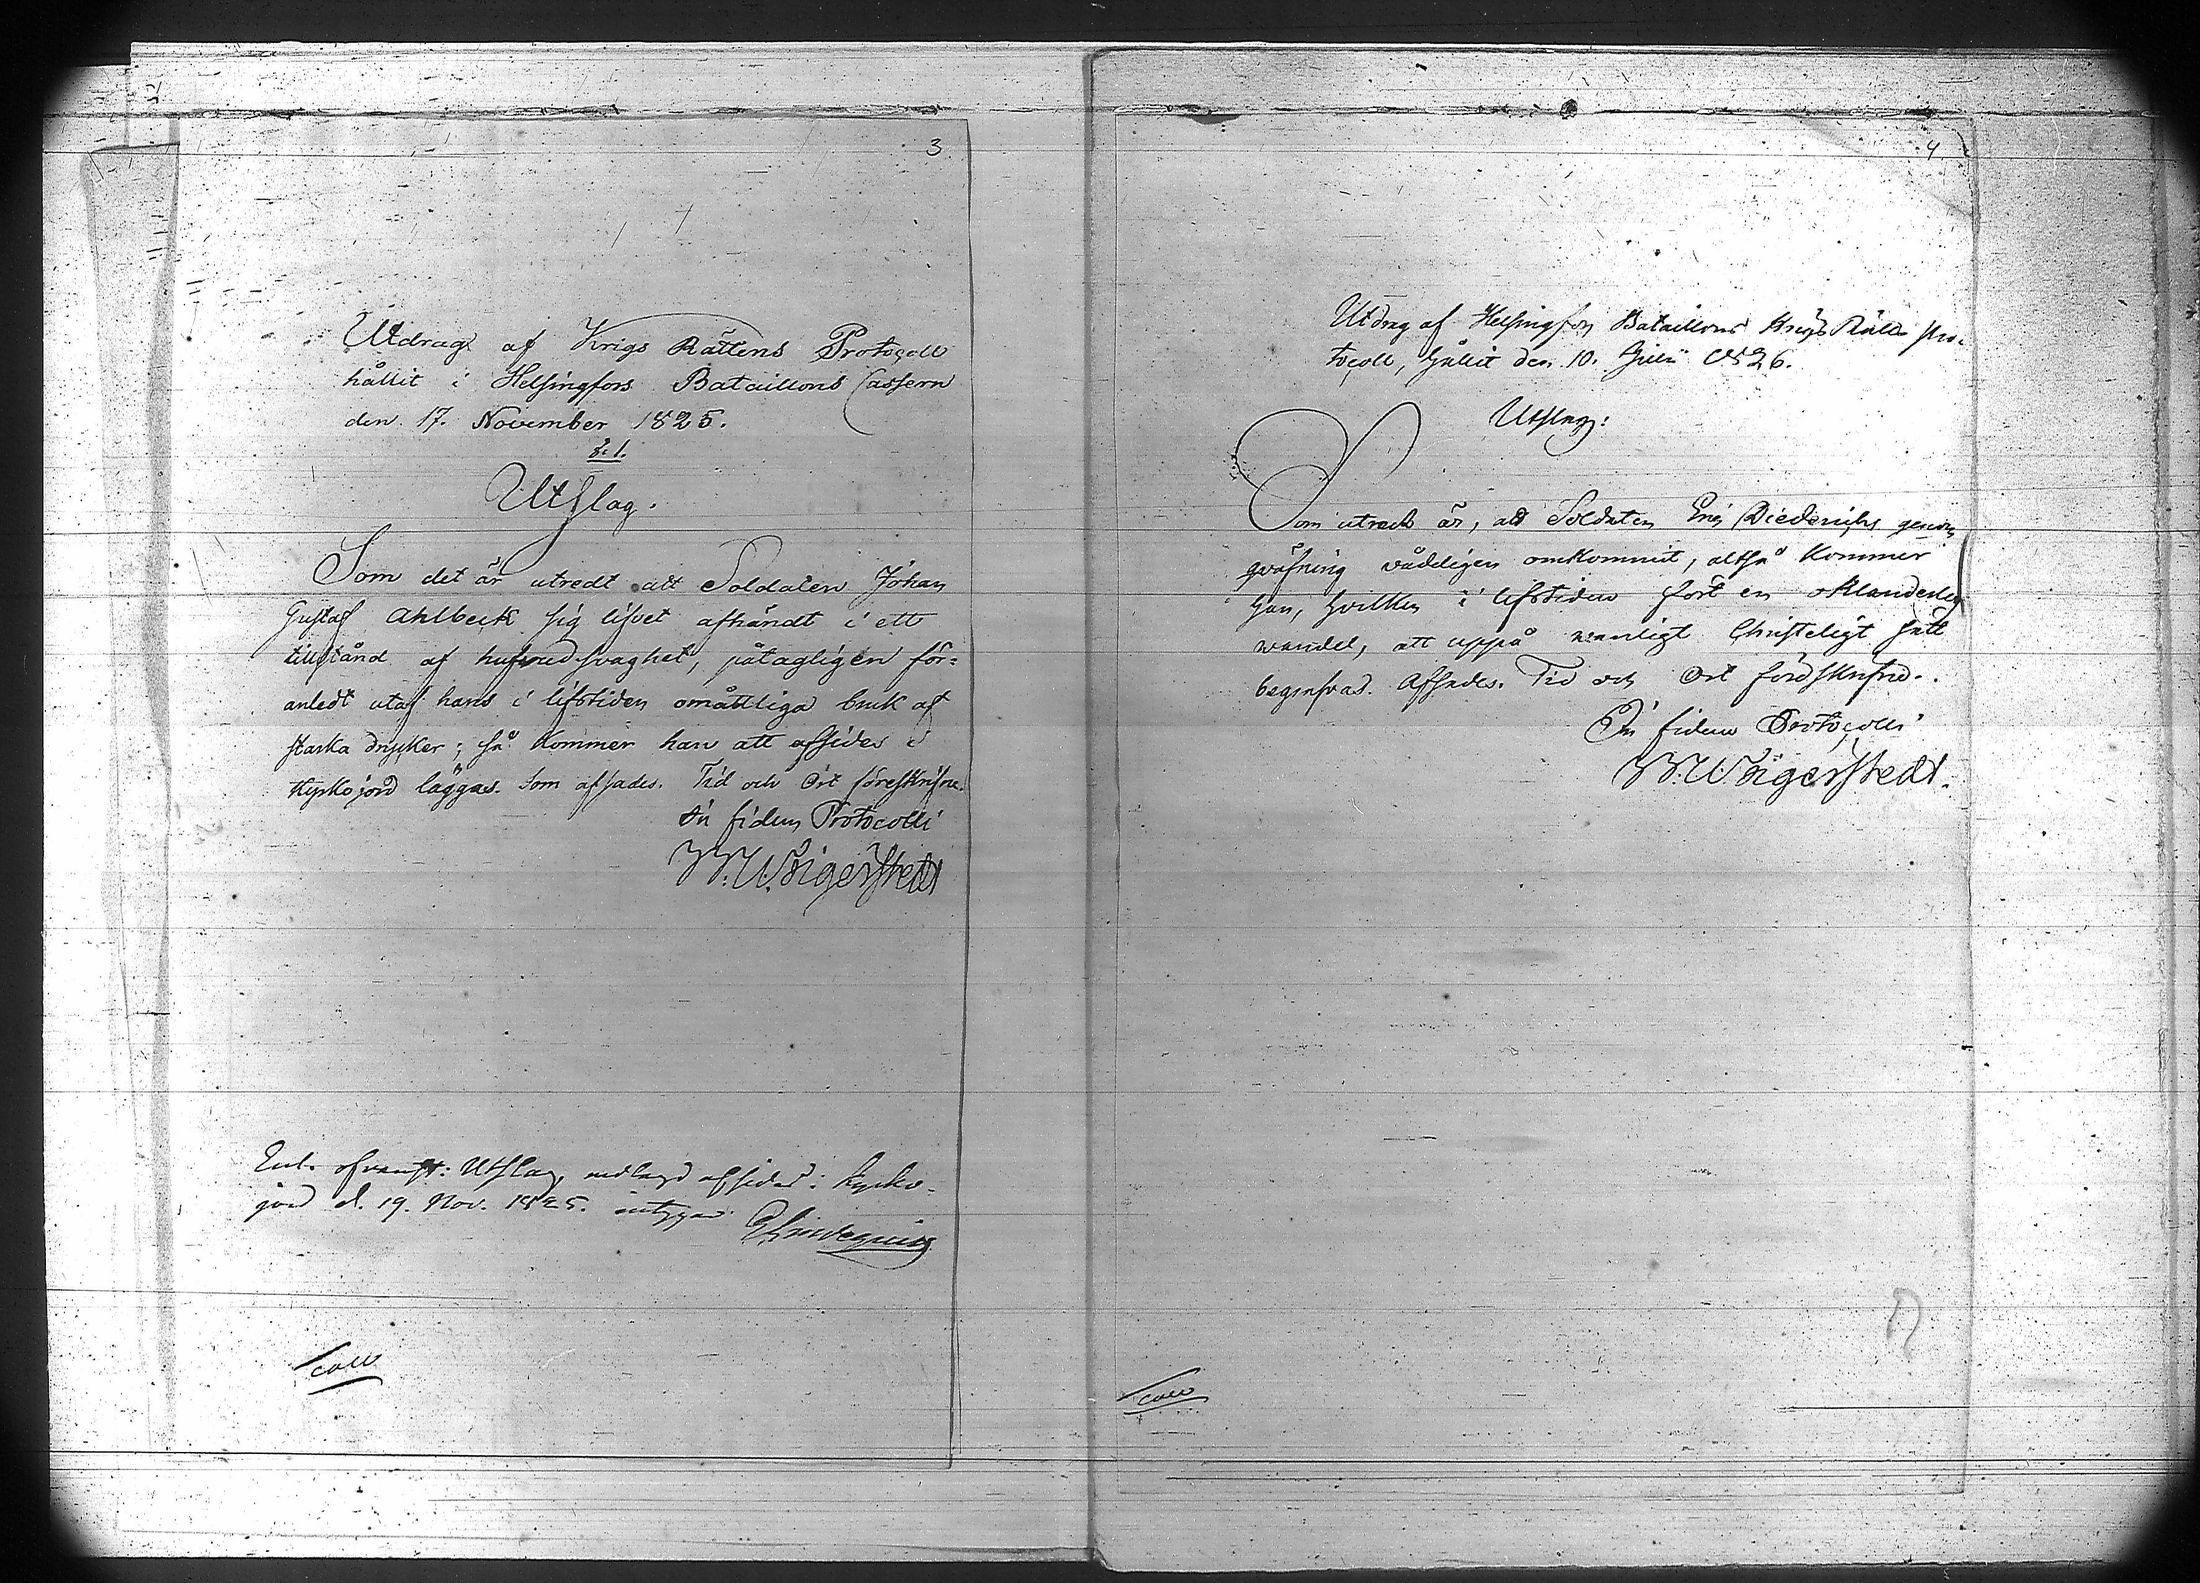 3
Utdrag af Krigs Rättens Protocoll
hållit i Helsingfors Bataillons Cassern
den 17. November 1825.
§. 1.
Utslag.
Som det är utredt att Soldaten Johan
Gustaf Ahlbeck sig lifvet afhändt i ett
tillstånd af hufvudsvaghet, påtagligen för-
anledt utaf hans i lifstiden omåttliga bruk af
starka drycker; så kommer han att afsides i
kyrkojord läggas. Som afsades. Tid och Ort föreskrifne.
In fidem Protocolli
Enl. ofvanst: Utslag, nedlagd afsides i kyrko-
jord d. 19. Nov. 1825. intygar
4
Utdrag af Helsingfors Bataillons Krigs Rätts Pro-
tocoll, hållit den 10. Julii 1826.
Utslag:
Som utredt är, att Soldaten Eric Diederichs genom
qväfning vådeligen omkommit, altså kommer
han, hvilken i lifstiden fört en oklanderlig
wandel, att uppå wanligt Christeligt sätt
begrafvas. Afsades. Tid och Ort förrskrifne.
In fidem Protocolli